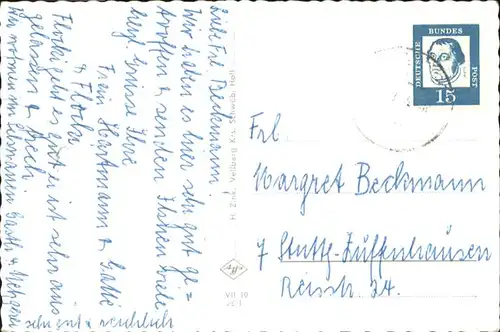 Liebe Frl. Beckmann!
Wir haben es hier sehr gut ge-
troffen & senden Ihnen viele
herzl. Grüsse Ihre
Frau Hartmann &
& Flocki
Flocki geht es gut er ist sehr
gelassen & frech.
Wir wohnen im
sehr gut & reichlich
H. Zink, Vellberg Krs. Schwäb. Hall
Agfa
DEUTSCHE BUNDES POST
15
Frl.
Margret Beckmann
7 Stuttg-Zuffenhausen
Reisstr. 34.